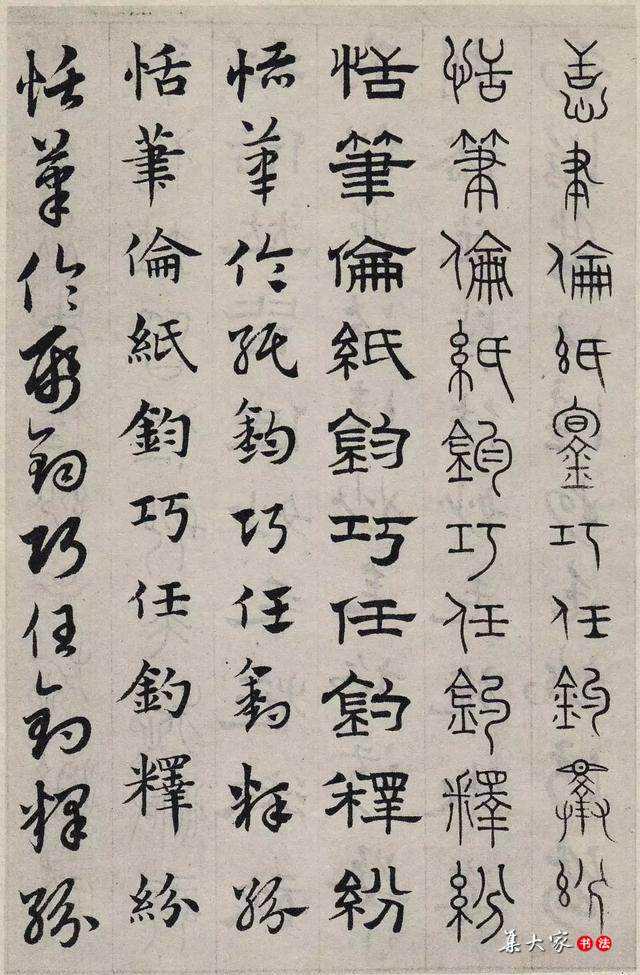 恬筆倫紙鈞巧任釣釋紛
恬筆倫紙鈞巧任釣釋紛
恬筆倫紙鈞巧任釣釋紛
恬筆倫紙鈞巧任釣釋紛
恬筆倫紙鈞巧任釣釋紛
恬筆倫紙鈞巧任釣釋紛
集大家书法